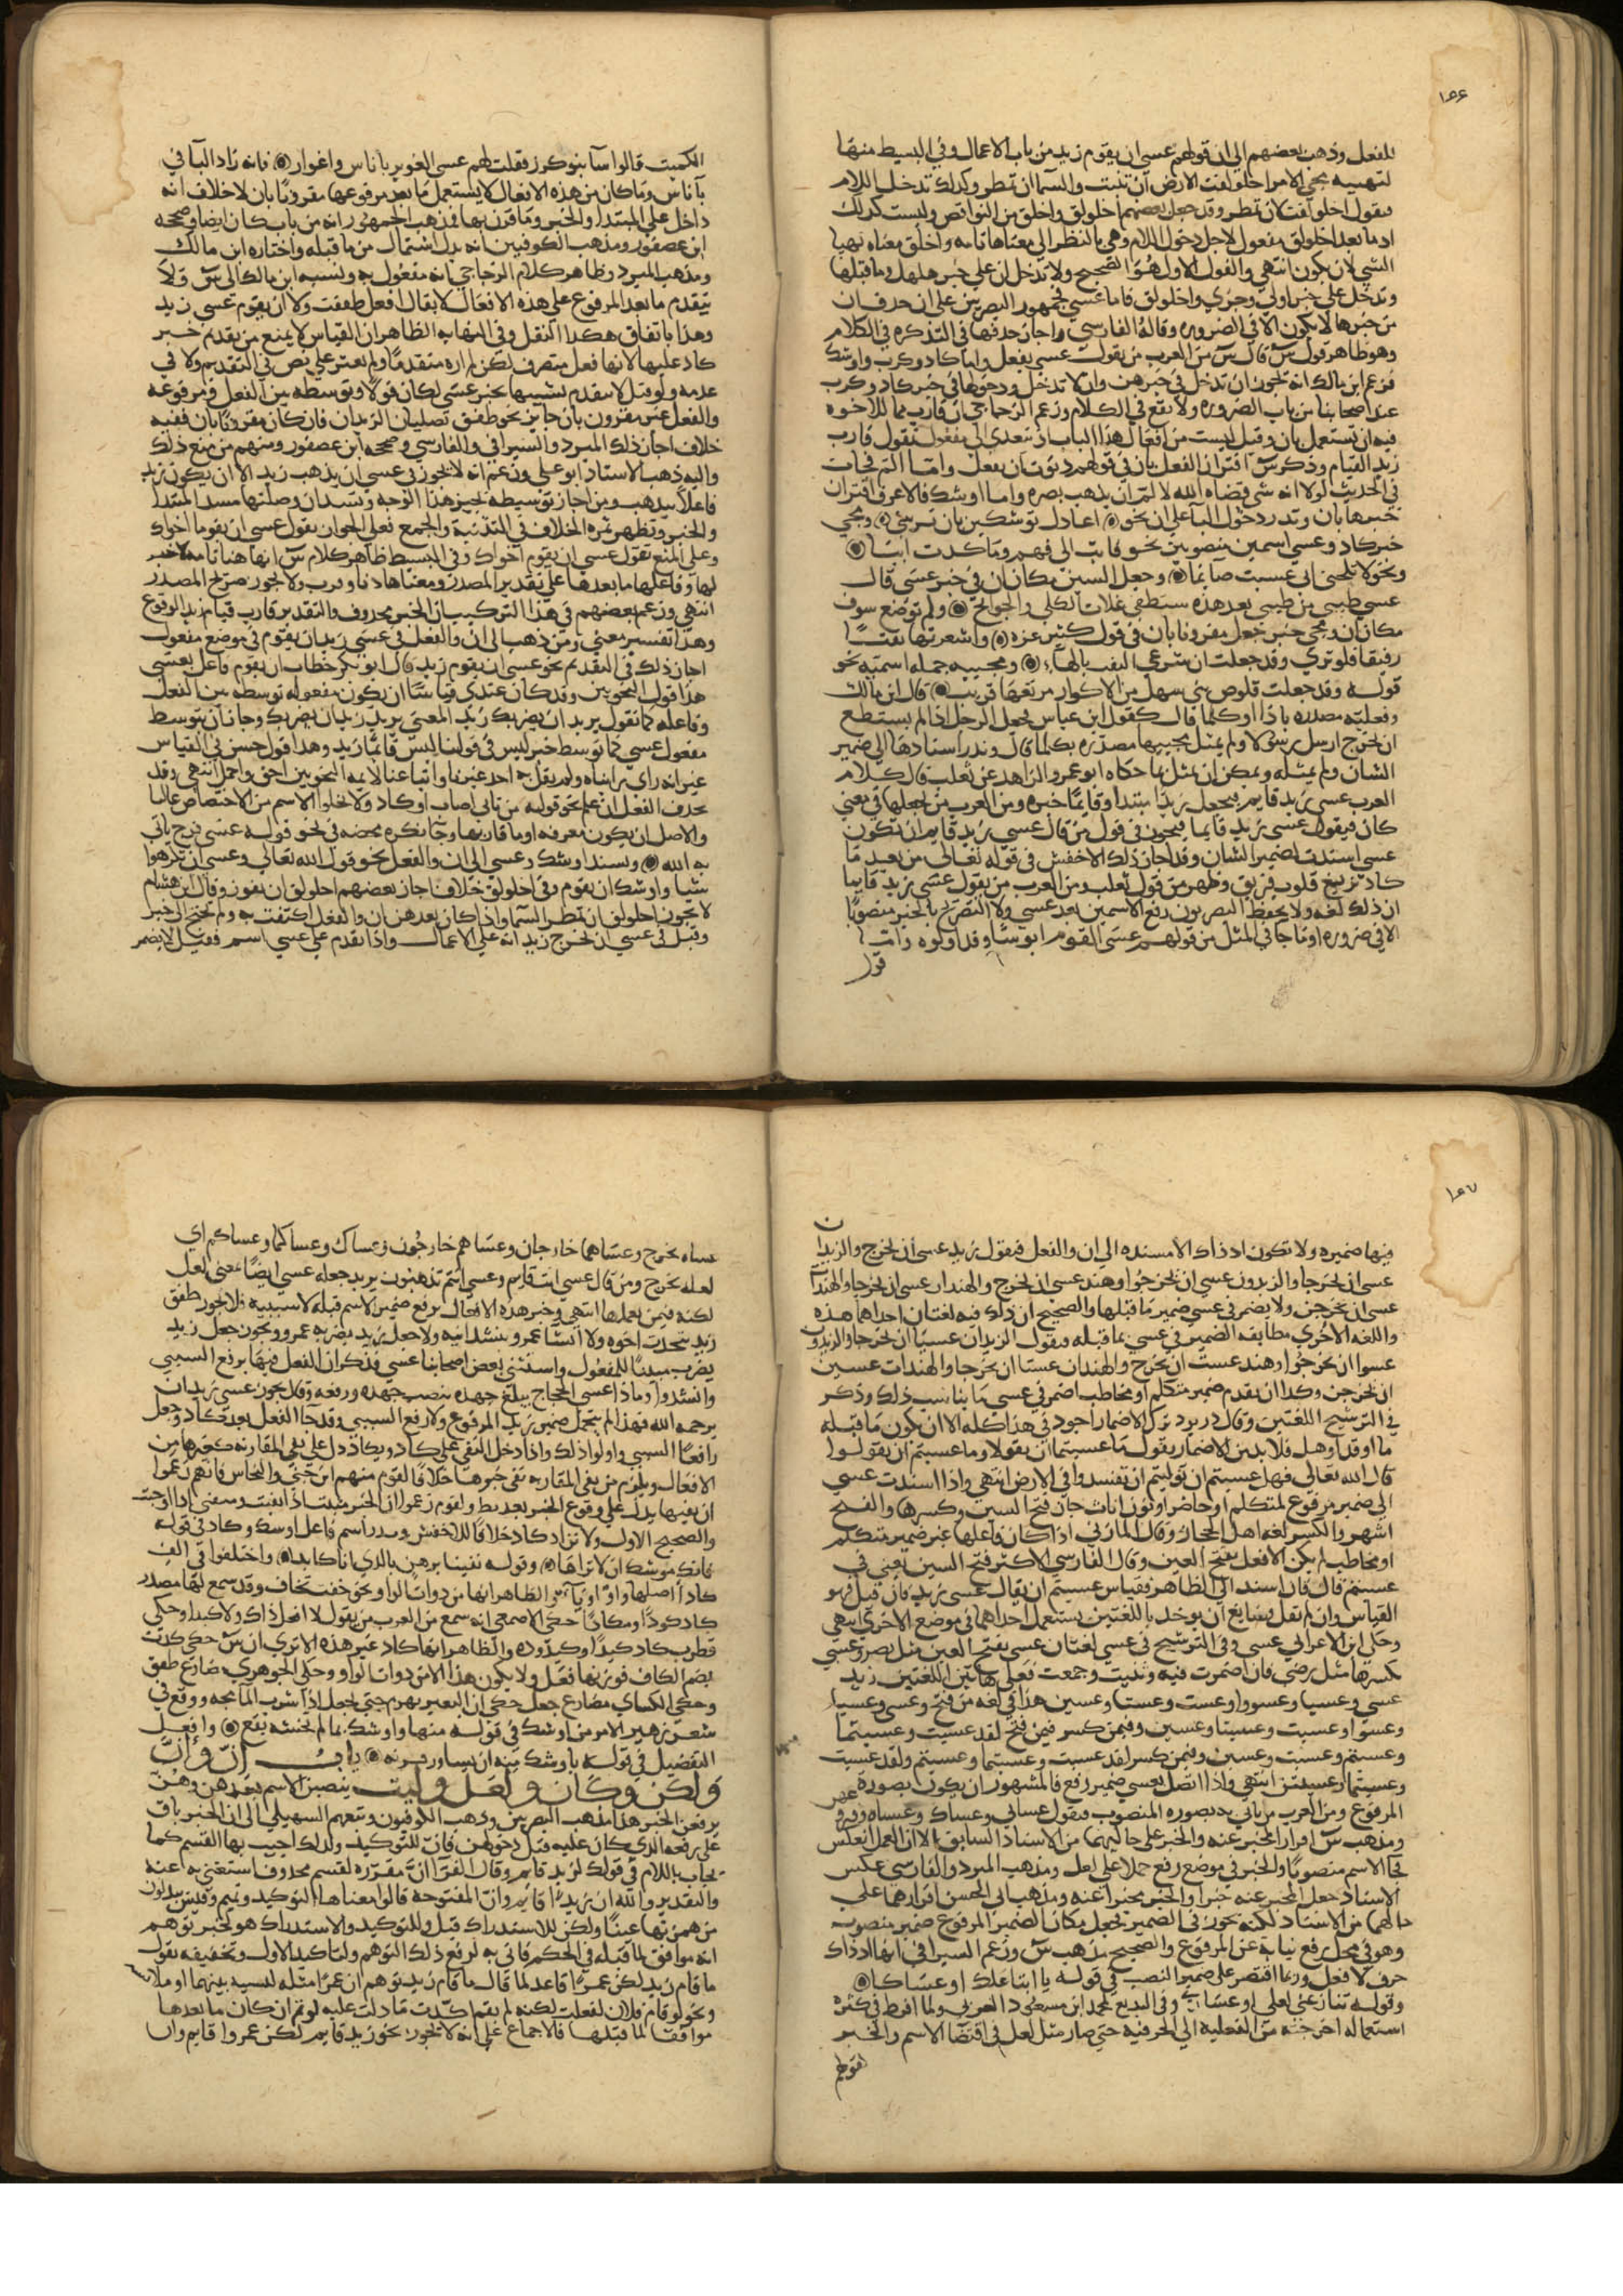 ١٥٦
للفعل وذهب بعضهم الى ان قولهم عسى ان يقوم زيد من باب الاعمال وفي البسيط منها
لتهييه يجى الامر اخلولقت الارض ان تنبت والسما ان تمطر وكذلك تدخل اللام
فيقول اخلولقت لان تمطر وقد جعل بعضهم اخلولق واخلق من النواقص وليست كذلك
اذ ما بعد اخلولق مفعول لاجل دخول اللام وهى بالنظر الى معناها تامه واخلق معناه تهيا
الشي لان يكون انتهى والقول الاول هو الصحيح ولا تدخل ان على خبر هلهل وما قبلها
وتدخل على خبر اولى وحرى واخلولق فاما عسى فجمهور البصريين على ان حذف ان
من خبرها لا يكون الا في الضروره وقاله الفارسي واجاز حذفها في التذكره في الكلام
وهو ظاهر قول س قال س من العرب من يقول عسى يفعل واما كاد وكرب واوشك
فزعم ابن مالك انه يجوز ان تدخل في خبرهن وان لا تدخل ودخولها في خبر كاد وكرب
عند اصحابنا من باب الضروره ولا يقع في الكلام وزعم الزجاجي ان قارب مما للاخوه
فيه ان تستعمل بان وقيل ليست من افعال هذا الباب اذ تتعدى الى مفعول تقول قارب
زيد القيام وذكر س اقتران الفعل بان في قولهم دنوت ان يفعل واما الم فجات
في الحديث لولا انه شي قضاه الله لالم ان يذهب بصره واما اوشك فالاعرف اقتران
خبرها بان وندر دخول البا على ان نحو ۞ اعاذل توشكين بان تريني ۞ ويجي
خبر كاد وعسى اسمين منصوبين نحو فابت الى فهم وما كدت ايبا ۞
ونحو لا تلحني اني عسيت صايما ۞ وجعل السين مكان ان في خبر عسى قال
عسى طيى من طيى بعد هذه ستطفى غلات الكلى والجوانح ۞ ولم توضع سوف
مكان ان ويجي خبر جعل مقرونا بان في قول كثير عزه ۞ واشعرتها نفثا
رفيقا فلو ترى وقد جعلت ان ترعي النفث بالها ۞ ومجييه جمله اسميه نحو
قوله وقد جعلت قلوص بني سهل من الاكوار مرتعها قريب ۞ قال ابن مالك
وفعليه مصدره باذا او كلما قال كقول ابن عباس فجعل الرجل اذا لم يستطع
ان يخرج ارسل رسولا ولم يمثل مجييها مصدره بكلما قال وندر اسنادها الى ضمير
الشان ولم يمثله ويمكن ان يمثل بما حكاه ابو عمر والزاهد عن ثعلب قال كلام
العرب عسى زيد قايم فيجعل زيدا مبتدا وقايما خبره ومن العرب من يجعلها في معنى
كان فيقول عسى زيد قايما فيجوز في قول من قال عسى زيد قايم ان تكون
عسى اسندت لضمير الشان وقد اجاز ذلك الاخفش في قوله تعالى من بعد ما
كاد تزيغ قلوب فريق وظهر من قول ثعلب ومن العرب من يقول عسى زيد قايما
ان ذلك لغه ولا يحفظ البصريون رفع الاسمين بعد عسى ولا التصريح بالخبر منصوبا
الا في ضروره او ما جا في المثل من قولهم عسى الغوير ابوسا وقد اولوه
قول
الكميت قالوا سآ بنو كرز فقلت لهم عسى الغوير باناس واغوار ۞ فانه زاد البا في
باناس وما كان من هذه الافعال لا يستعمل ما بعد مرفوعها مقرونا بان لا خلاف انه
داخل على المبتدا والخبر وما قرن بها فمذهب الجمهور انه من باب كان ايضا وصححه
ابن عصفور ومذهب الكوفيين انه بدل اشتمال من ما قبله واختاره ابن مالك
ومذهب المبرد وظاهر كلام الزجاجي انه مفعول به ونسبه ابن مالك الى س ولا
يتقدم ما بعد المرفوع على هذه الافعال لا يقال افعل طفقت ولا ان يقوم عسى زيد
وهذا باتفاق هكذا النقل وفي النهايه الظاهر ان القياس لا يمنع من تقديم خبر
كاد عليها لانها فعل متصرف لكن لم اره متقدما ولم نعثر على نص في التقديم ولا في
عدمه ولو قيل لا يتقدم لشبهها بخبر عسى لكان قولا وتوسطه بين الفعل ومرفوعه
والفعل غير مقرون بان جايز نحو طفق تصليان الزيدان فان كان مقرونا بان ففيه
خلاف اجاز ذلك المبرد والسيرافي والفارسي وصححه ابن عصفور ومنهم من منع ذلك
واليه ذهب الاستاذ ابو علي وزعم انه لا يجوز في عسى ان يذهب زيد الا ان يكون زيد
فاعلا بيذهب ومن اجاز توسيطه يجيز هذا الوجه وتسد ان وصلتها مسد المبتدا
والخبر وتظهر ثمره الخلاف في التثنية والجمع فعلى الجواز تقول عسى ان يقوما اخواك
وعلى المنع تقول عسى ان يقوم اخواك وفي البسيط ظاهر كلام س انها هنا تامه لا خبر
لها وفاعلها ما بعدها على تقدير المصدر ومعناها دنا وقرب ولا يجوز صريح المصدر
انتهى وزعم بعضهم في هذا التركيب ان الخبر محذوف والتقدير قارب قيام زيد الوقوع
وهذا تفسير معنى ومن ذهب الى ان والفعل في عسى زيد ان يقوم في موضع مفعول
اجاز ذلك في التقديم نحو عسى ان يقوم زيد قال ابو بكر خطاب ان يقوم فاعل بعسى
هذا قول النحويين وقد كان عندي قياسا ان يكون مفعوله توسطه بين الفعل
وفاعله كما تقول يريد ان يضربك زيد المعنى يريد زيد ان يضربك وجاز ان يتوسط
مفعول عسى كما توسط خبر ليس في قولنا ليس قايما زيد وهذا قول حسن في القياس
غير انه راي رايناه ولم يقل به احد غيرنا واتباعنا لايمه النحويين احق واجمل انتهى وقد
يحذف الفعل ان علم نحو قوله من تانى اصاب او كاد ولا يخلو الاسم من الاختصاص غالبا
والاصل ان يكون معرفه او ما قاربها وجا نكره محضه في نحو قوله عسى فرج ياتي
به الله ۞ ويسند اوشك وعسى الى ان والفعل نحو قول الله تعالى وعسى ان تكرهوا
شيا واوشك ان يقوم وفي اخلولق خلاف اجاز بعضهم اخلولق ان يفوز وقال ابن هشام
لا يجوز اخلولق ان تمطر السما واذا كان بعدهن ان والفعل اكتفت به ولم تحتج الى خبر
وقيل في عسى ان يخرج زيد انه على الاعمال واذا تقدم على عسى اسم فقيل لا يضمر
١٥٧
فيها ضميره ولا تكون اذ ذاك الا مسنده الى ان والفعل فيقول زيد عسى ان يخرج والزيدان
عسى ان يخرجا والزيدون عسى ان يخرجوا وهند عسى ان تخرج والهندان عسى ان تخرجا والهندات
عسى ان يخرجن ولا يضمر في عسى ضمير ما قبلها والصحيح ان ذلك فيه لغتان احداهما هذه
واللغه الاخرى مطابقه الضمير في عسى بما قبله فيقول الزيدان عسيا ان يخرجا والزيدون
عسوا ان يخرجوا وهند عست ان تخرج والهندان عستا ان تخرجا والهندات عسين
ان يخرجن وكذا ان تقدم ضمير متكلم او مخاطب اضمر في عسى ما يناسب ذلك وذكر
في الترشيح اللغتين وقال دريود ترك الاضمار اجود في هذا كله الا ان يكون ما قبله
ما او قد او هل فلا بد من الاضمار يقول ما عسيتما ان يقولا وما عسيتم ان يقولوا
قال الله تعالى فهل عسيتم ان توليتم ان تفسدوا في الارض انتهى واذا اسندت عسى
الى ضمير مرفوع لمتكلم او حاضر او نون اناث جاز فتح السين وكسرها والفتح
اشهر والكسر لغه اهل الحجاز وقال المازني اذا كان فاعلها غير ضمير متكلم
او مخاطب لم يكن الا فعل بفتح العين وقال الفارسي الاكثر فتح السين يعني في
عسيتم قال فان اسند الى الظاهر فقياس عسيتم ان يقال عسى زيد فان قيل فهو
القياس وان لم نقل فسايغ ان يوخذ باللغتين يستعمل احداهما في موضع الاخرى انتهى
وحكى ابن الاعرابي عسى وفي الترشيح في عسى لغتان عسى بفتح العين مثل نصر وعسي
بكسرها مثل رضي فان اضمرت فيه وثنيت وجمعت فعلى هاتين اللغتين زيد
عسى وعسيا وعسوا وعست وعستا وعسين هذا في لغه من فتح وعسى وعسيا
وعسوا وعسيت وعسيتا وعسين وفيمن كسر فيمن فتح لقد عسيت وعسيتما
وعسيتم وعسيت وعسين وفيمن كسر لقد عسيت وعسيتما وعسيتم ولقد عسيت
وعسيتما وعسيتن انتهى واذا اتصل بعسى ضمير رفع فالمشهور ان يكون بصورة
المرفوع ومن العرب من ياتي به بصوره المنصوب فيقول عساني وعساك وعساه
ومذهب س اقرار المخبر عنه والخبر على حاليهما من الاسناد السابق الا ان العمل انعكس
فجا الاسم منصوبا والخبر في موضع رفع حملا على لعل ومذهب المبرد والفارسي عكس
الاسناد جعل المخبر عنه خبرا والخبر مخبرا عنه ومذهب ابي الحسن اقرارهما على
حالهما من الاسناد لكنه تجوز في الضمير بجعل مكان الضمير المرفوع ضمير منصوب
وهو في محل رفع نيابه عن المرفوع والصحيح مذهب س وزعم السيرافي انها اذ ذاك
حرف لا فعل وربما اقتصر على ضمير النصب في قوله يا ابتا علك او عساكا ۞
وقوله تنازعني لعلي او عساني وفي البديع لمحمد ابن مسعود الغزني ولما افرط في كثره
استعماله اخرجته من الفعليه الى الحرفيه حتى صار مثل لعل في اقتضا الاسم والخبر
قولهم
عساه يخرج وعساهما خارجان وعساهم خارجون وعساك وعساكما وعساكم اي
لعله يخرج ومن قال عسى انت قايم وعسى انتم تذهبون يريد جعله عسى ايضا بمعنى لعل
لكنه فيمن يعملها انتهى وخبر هذه الافعال يرفع ضمير الاسم قبله لا سببيه فلا يجوز طفق
زيد يتحدث اخوه ولا انشا عمرو ينشد ابنه ولا جعل زيد يضربه عمرو ويجوز جعل زيد
يضرب مبنيا للمفعول واستثنى بعض اصحابنا عسى فذكر ان الفعل فيها يرفع السببي
وانشدوا وماذا عسى الحجاج يبلغ جهده بنصب جهده ورفعه وقل يجوز عسى زيد ان
يرحمه الله فهذا لم يتحمل ضمير زيد المرفوع ولا رفع السببي وقد جا الفعل بعد كاد وجعل
رافعا السببي واولوا ذلك واذا دخل النفي على كاد ويكاد دل على نفي المقاربه كغيرها من
الافعال ويلزم من نفي المقاربه نفي خبرها خلافا لقوم منهم ابن جني والنحاس فانهم زعموا
ان نفيها يدل على وقوع الخبر بعد بطء ولقوم زعموا ان الخبر مثبت اذا نفيت ومنفي اذا اوجبت
والصحيح الاول ولا تزاد كاد خلافا للاخفش وندر اسم فاعل اوشك وكاد في قوله
فانك موشك ان لا تراها ۞ وقوله يقينا لرهن بالذي انا كايد ۞ واختلفوا في الف
كاد اصلها واو او ياء الظاهر انها من ذوات الواو نحو خفت تخاف وقد سمع لها مصدر
كاد كودا ومكادا حكى الاصمعي انه سمع من العرب من يقول لا افعل ذاك ولا كيدا وحكى
قطرب كاد كيدا وكيدوده والظاهر انها كاد غير هذه الا ترى ان س حكى كدت
بضم الكاف فوزنها فعل ولا يكون هذا الا من ذوات الواو وحكى الجوهري مضارع طفق
وحكى الكساي مضارع جعل حكى ان البعير يهرم حتى يجعل اذا شرب الما يمجه ووقع في
شعر زهير الامر من اوشك في قوله منها واوشك بما لم تخشه يقع ۞ وافعل
التفضيل في قوله باوشك منه ان يساور قرنه ۞ باب ان وان
ولكن وكان ولعل وليت ينصبن الاسم بعدهن وهن
يرفعن الخبر هذا مذهب البصريين وذهب الكوفيون وتبعهم السهيلي الى ان الخبر باق
على رفعه الذي كان عليه قبل دخولهن فان للتوكيد ولذلك اجيب بها القسم كما
يجاب باللام في قولك لزيد قايم وقال الفرا ان مقرره لقسم محذوف استغني به عنه
والتقدير والله ان زيدا قايم وان المفتوحه قالوا معناها التوكيد وتميم وقيس يبدلون
من همزتها عينا ولكن للاستدراك قيل وللتوكيد والاستدراك هو لخبر توهم
انه موافق لما قبله في الحكم فاتي به لرفع ذلك التوهم ولتاكيد الاول وتحقيقه تقول
ما قام زيد لكن عمرا قاعد لما قال ما قام زيد توهم ان عمرا مثله لشبه بينهما او ملابسه
ونحو لو قام فلان لفعلت لكنه لم يقم اكدت ما دلت عليه لو ثم ان كان ما بعدها
موافقا لما قبلها فالاجماع على انه لا يجوز نحو زيد قايم لكن عمرا قايم وان